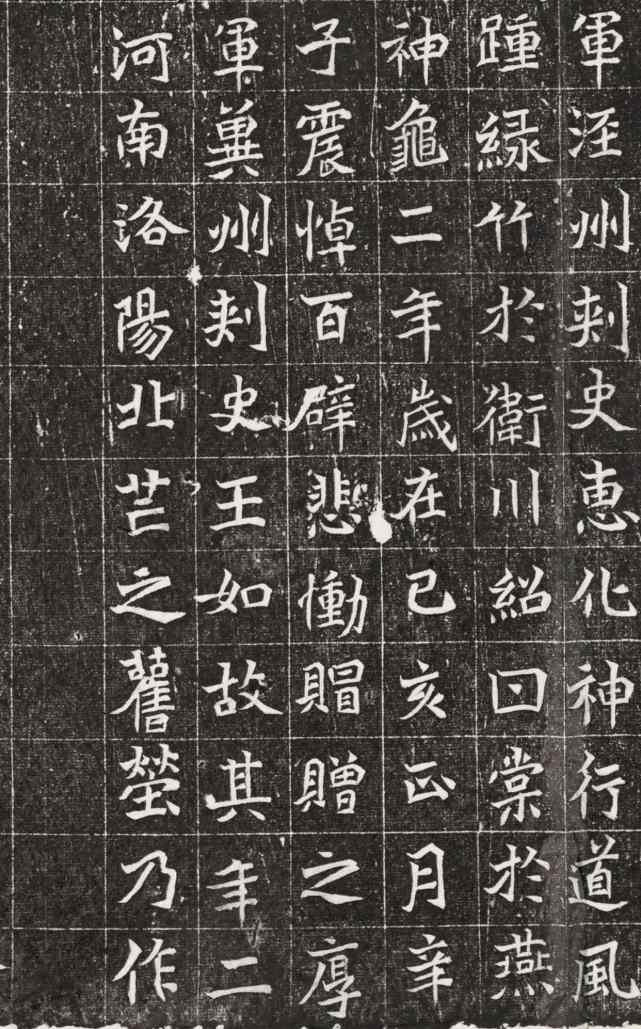 軍涇州刾史恵化神行道風
踵緑竹於衛川紹曰棠於燕
神龜二年歳在己亥正月辛
子震悼百辟悲慟賵贈之厚
軍冀州刾史王如故其年二
河南洛陽北芒之舊塋乃作